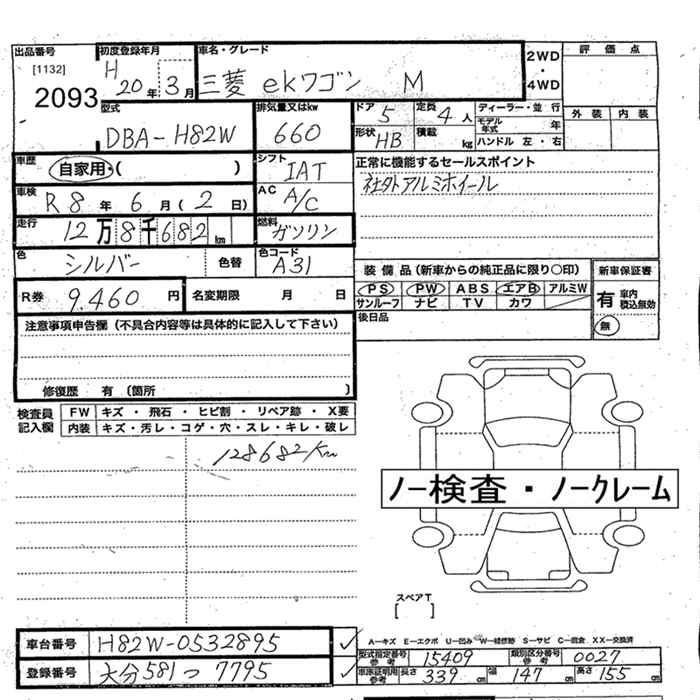 出品番号 初度登録年月 車名・グレード 2WD・4WD 評価点
[1132] 2093 H 20年 3月 三菱 ekワゴン M
外装 内装
型式 排気量又はkw ドア 定員 ディーラー・並行
DBA-H82W 660 5 4人 モデル年式 年
形状 HB 積載 kg ハンドル 左・右
車歴 自家用・( ) シフト IAT 正常に機能するセールスポイント
車検 R8年 6月(2日) AC A/C 社外アルミホイール
走行 12万8千682km 燃料 ガソリン
色 シルバー 色替 色コード A31
装備品(新車からの純正品に限り○印) 新車保証書
R券 9.460円 名変期限 月 日 PS PW ABS エアB アルミW 有 車内積込無効
サンルーフ ナビ TV カワ 無
注意事項申告欄(不具合内容等は具体的に記入して下さい) 後日品
修復歴 有(箇所 )
検査員記入欄 FW キズ・飛石・ヒビ割・リペア跡・X要
内装 キズ・汚レ・コゲ・穴・スレ・キレ・破レ
128682km
ノー検査・ノークレーム
スペアT
[ ]
車台番号 H82W-0532895 A−キズ E−エクボ U−凹み W−補修跡 S−サビ C−腐食 XX−交換済
型式指定番号 参考 15409 類別区分番号 参考 0027
登録番号 大分581つ7795 車庫証明用 参考 長さ 339cm 幅 147cm 高さ 155cm